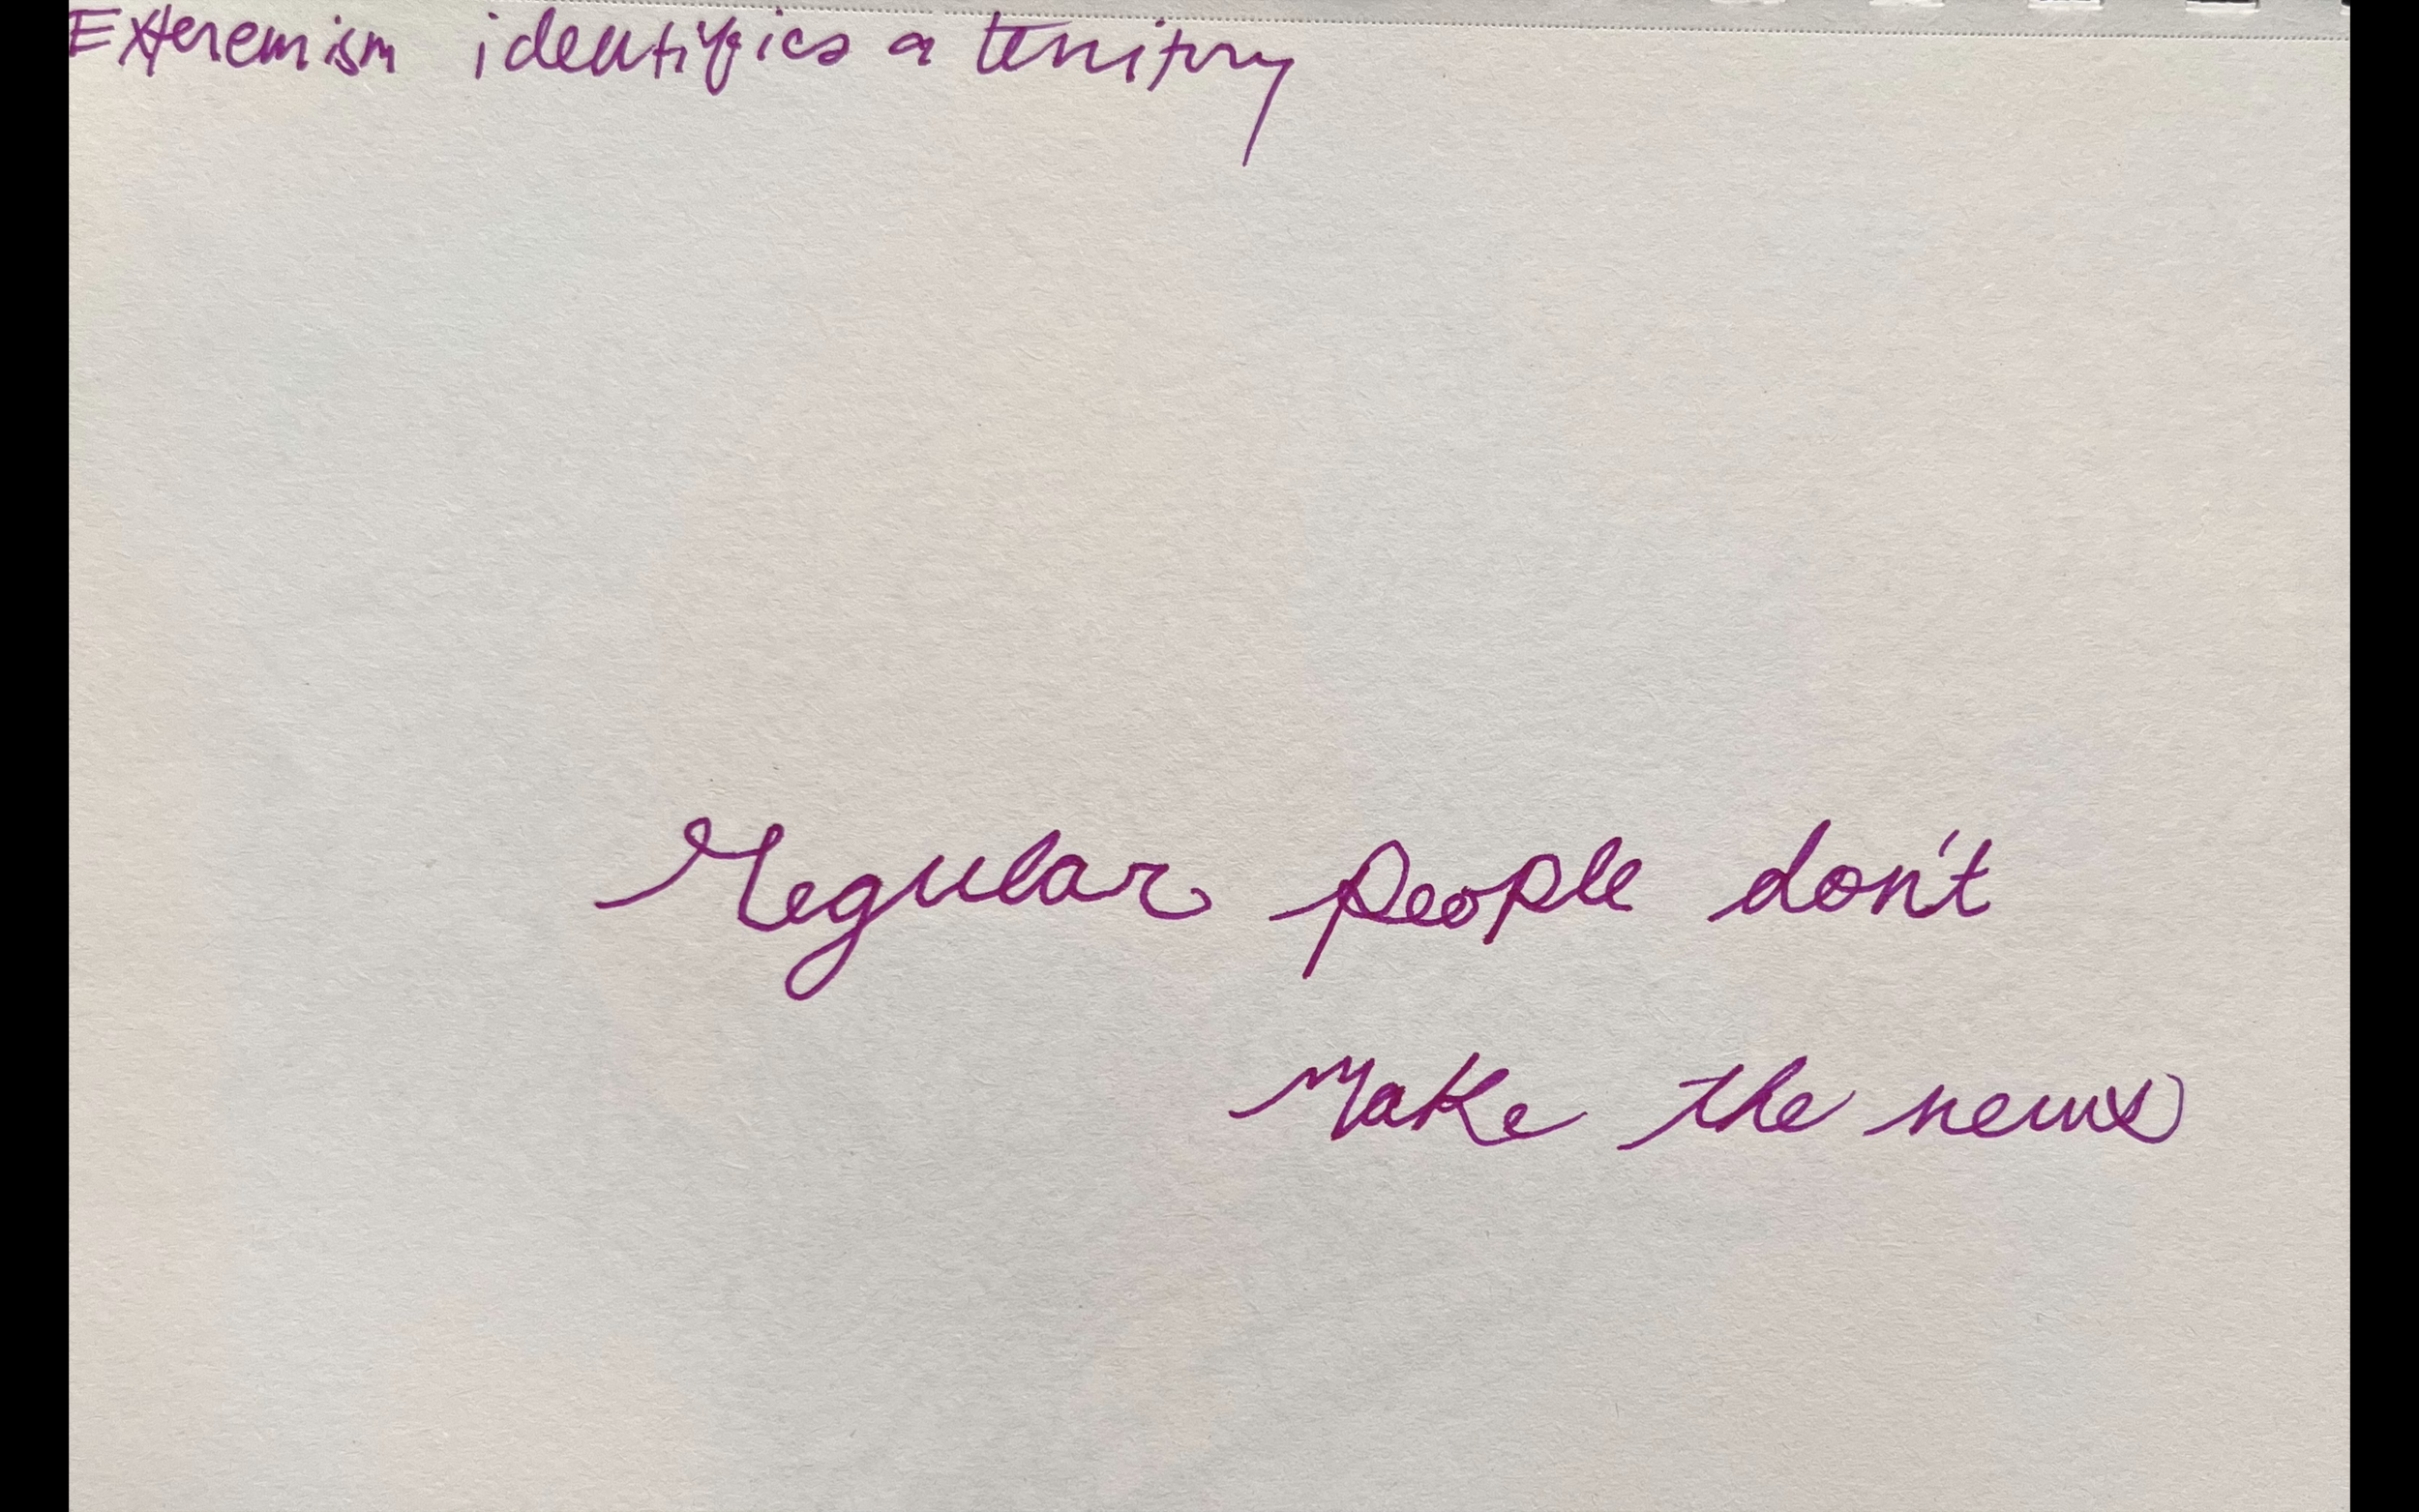 Exteremism identifies a territory
Regular people don't
Make the news